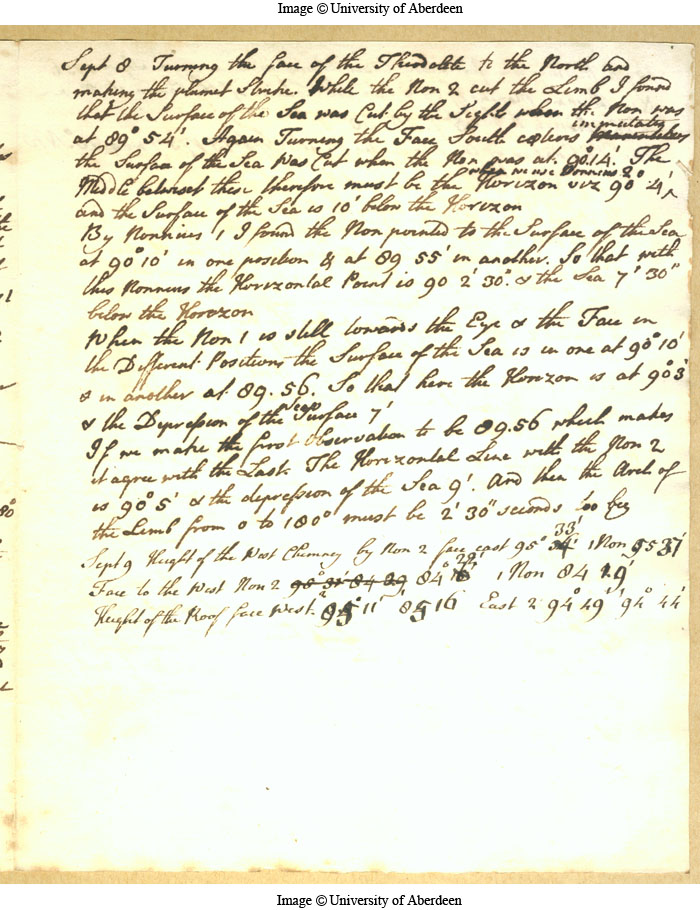 Image © University of Aberdeen
Sept 8 Turning the face of the Theodolite to the North and
making the plumet Strike. While the Non 2 cut the Limb I found
that the Surface of the Sea was Cut by the Sights when the Non was
at 89° 54'. Again Turning the Face South cæteris immutatis
the Surface of the Sea Was Cut when the Non was at 90°.14'. The
Middle betwixt these therefore must be the Horizon when we use Nonnius 2° viz 90° 4',
and the Surface of the Sea is 10' below the Horizon
By Nonnius 1 I found the Non pointed to the Surface of the Sea
at 90° 10' in one position & at 89 55' in another. So that with
this Nonnius the Horizontal Point is 90 2' 30". & the Sea 7' 30"
below the Horizon
When the Non 1 is still towards the Eye & the Face in
the Different Positions the Surface of the Sea is in one at 90° 10'
& in another at 89.56. So that here the Horizon is at 90° 3'
& the Depression of the Seas Surface 7'
If we make the first Observation to be 89.56 which makes
it agree with the Last. The Horizontal Line with the Non 2
is 90° 5' & the depression of the Sea 9'. And then the Arch of
the Limb from 0 to 180° must be 2' 30" seconds too big
Sept 9 Height of the West Chimney by Non 2 face east 95° 33' 1 Non 95 37'
Face to the West Non 2 95° 31' 84 29 84° 22' 1 Non 84 19'
Height of the Roof face West. 2 85° 11' 85 16 East 2 94° 49' 94° 44'
Image © University of Aberdeen